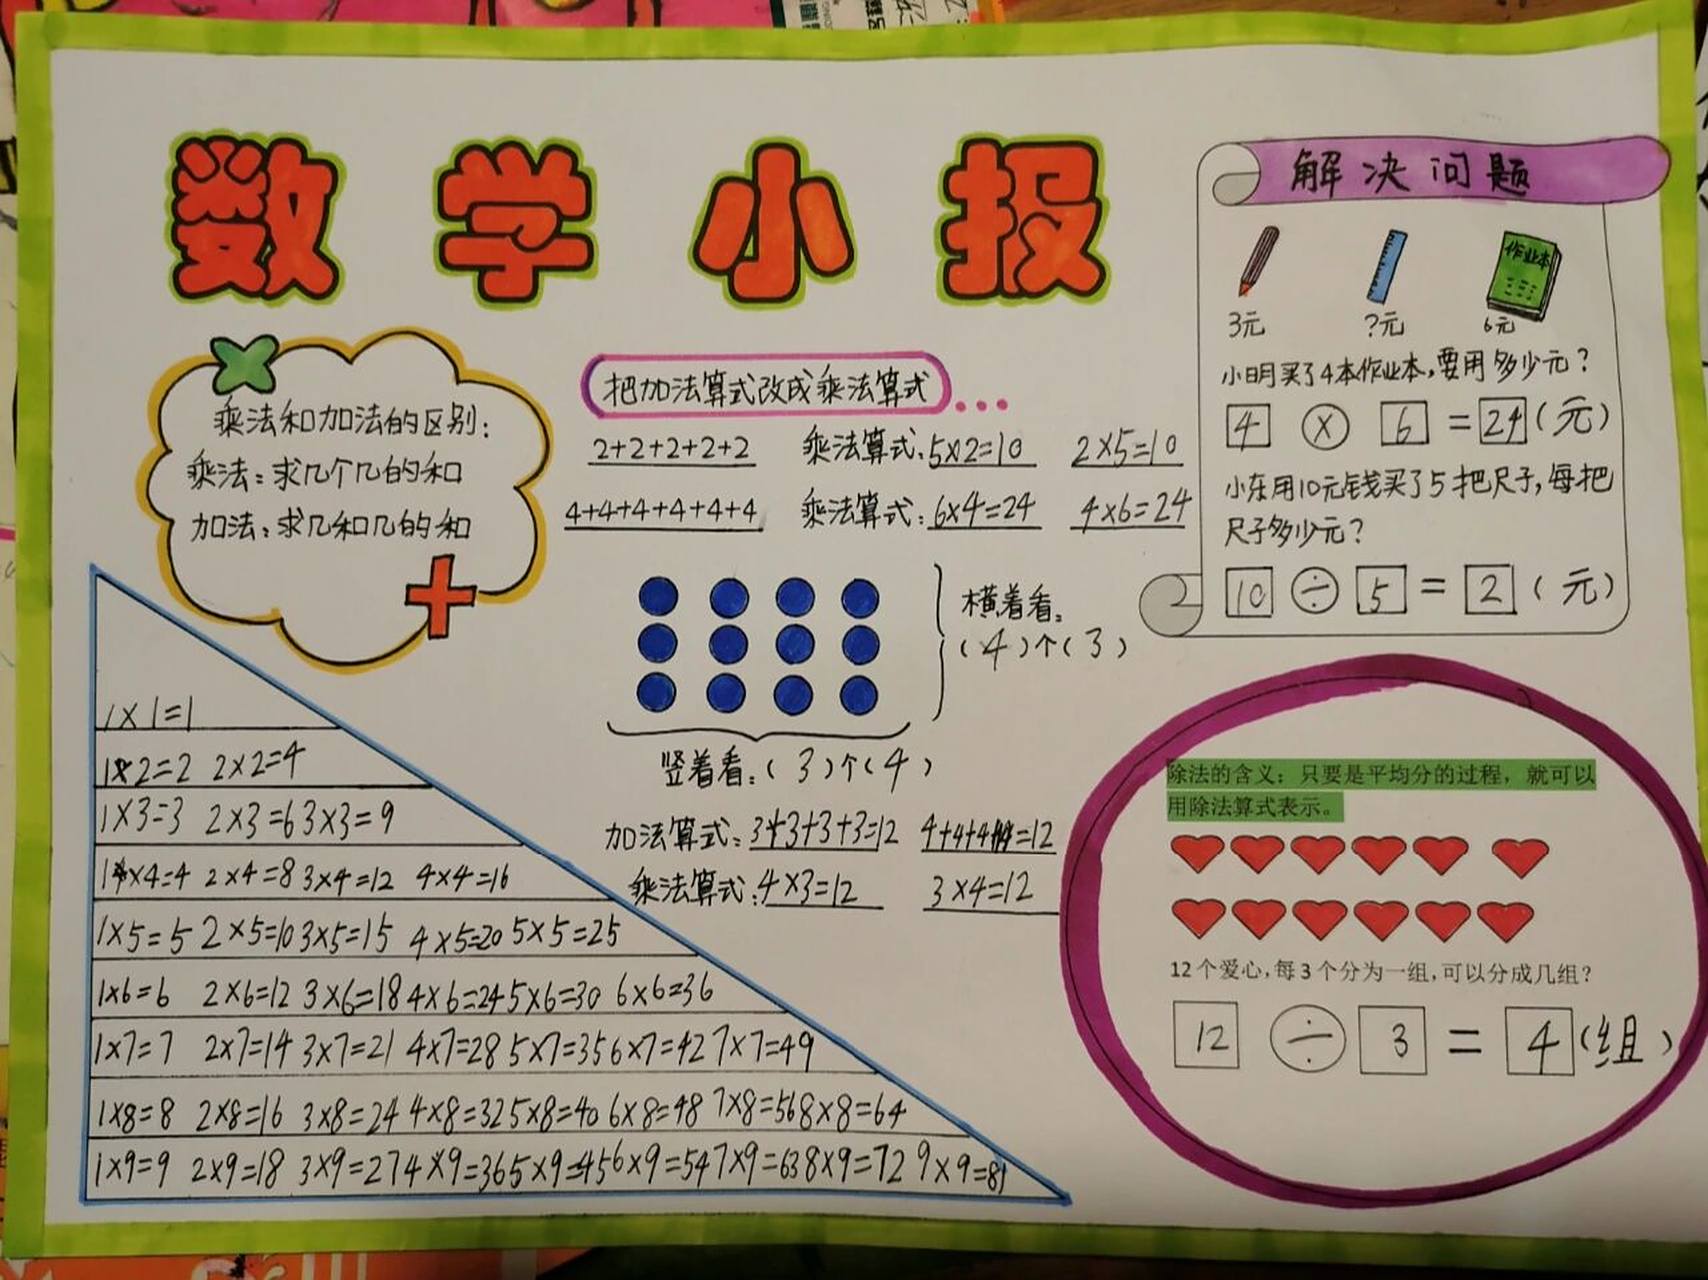 数学小报
乘法和加法的区别:
乘法:求几个几的和
加法:求几和几的和
把加法算式改成乘法算式...
2+2+2+2+2 乘法算式:5×2=10 2×5=10
4+4+4+4+4+4 乘法算式:6×4=24 4×6=24
横着看:
(4)个(3)
竖着看:(3)个(4)
加法算式:3+3+3+3=12 4+4+4=12
乘法算式:4×3=12 3×4=12
解决问题
作业本
3元 ?元 6元
小明买了4本作业本,要用多少元?
4 × 6 = 24(元)
小东用10元钱买了5把尺子,每把
尺子多少元?
10 ÷ 5 = 2(元)
1×1=1
1×2=2 2×2=4
1×3=3 2×3=6 3×3=9
1×4=4 2×4=8 3×4=12 4×4=16
1×5=5 2×5=10 3×5=15 4×5=20 5×5=25
1×6=6 2×6=12 3×6=18 4×6=24 5×6=30 6×6=36
1×7=7 2×7=14 3×7=21 4×7=28 5×7=35 6×7=42 7×7=49
1×8=8 2×8=16 3×8=24 4×8=32 5×8=40 6×8=48 7×8=56 8×8=64
1×9=9 2×9=18 3×9=27 4×9=36 5×9=45 6×9=54 7×9=63 8×9=72 9×9=81
除法的含义:只要是平均分的过程,就可以
用除法算式表示。
12个爱心,每3个分为一组,可以分成几组?
12 ÷ 3 = 4(组)